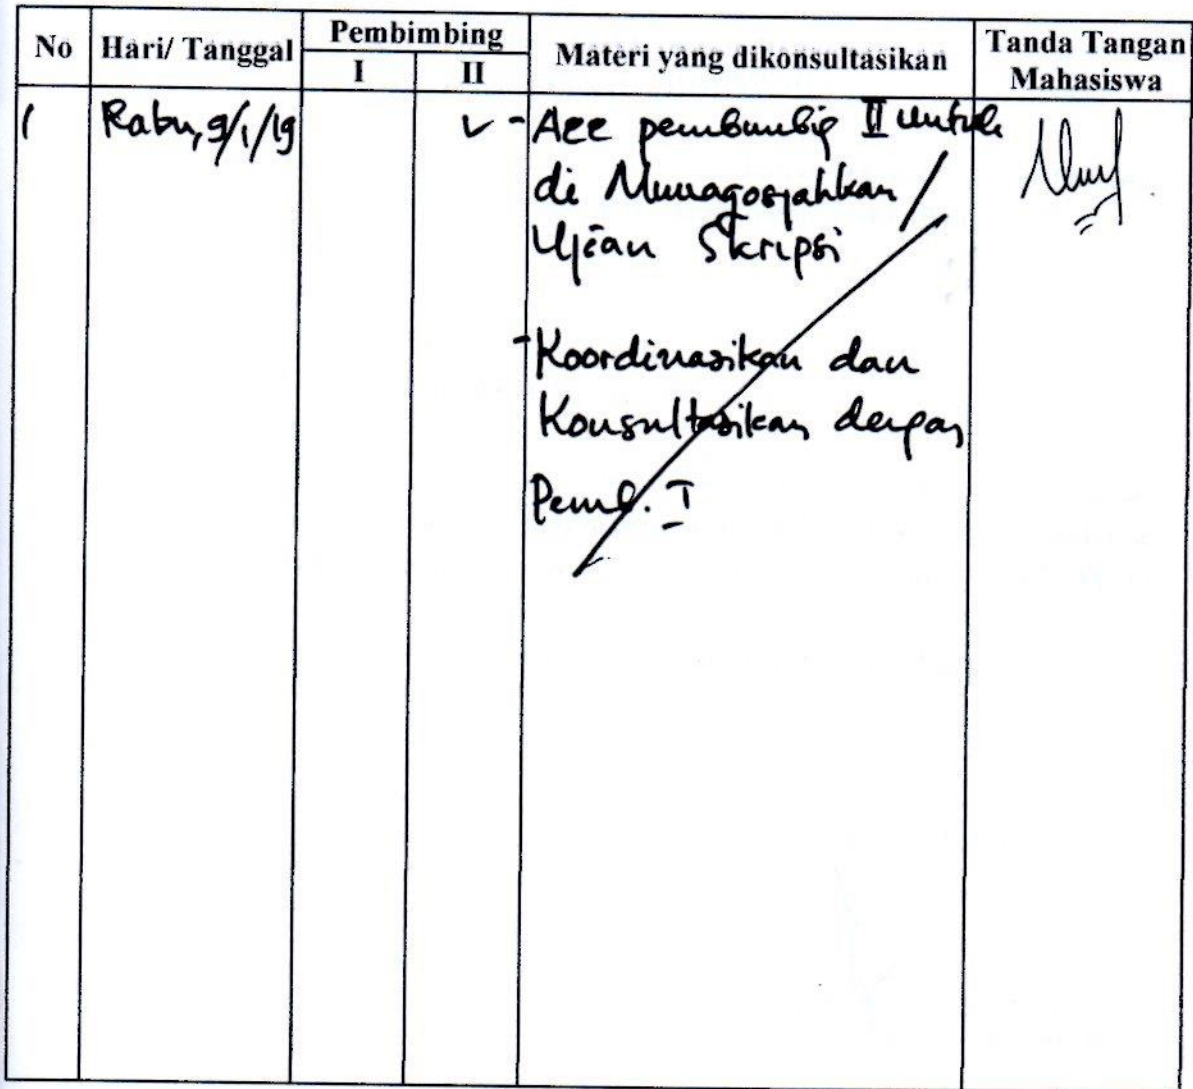 No Hari/ Tanggal Pembimbing Materi yang dikonsultasikan Tanda Tangan Mahasiswa
I II
1 Rabu, 9/1/19 - Acc pembimbig II untuk
di Munaqosyahkan
Ujian Skripsi
- Koordinasikan dan
Konsultasikan dengan
Pemb. I